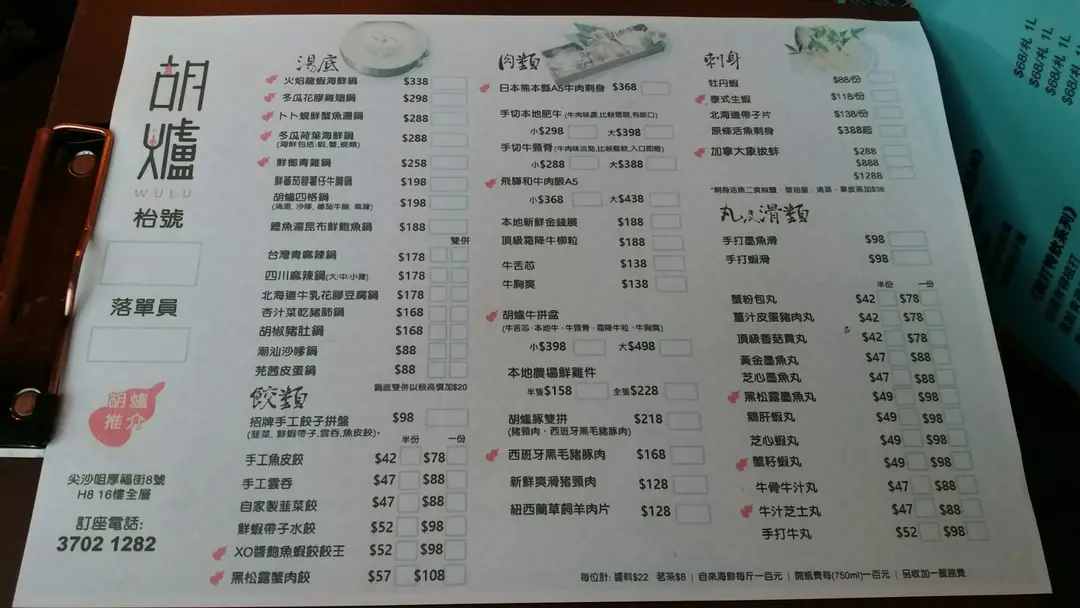 胡爐
WULU
枱號
落單員
胡爐
推介
尖沙咀厚福街8號
H8 16樓全層
訂座電話:
3702 1282
湯底
火焰龍蝦海鮮鍋 $338
冬瓜花膠雞翅鍋 $298
卜卜蜆鮮蟹魚湯鍋 $288
冬瓜荷葉海鮮鍋 $288
(海鮮包括:蝦,蟹,蜆類)
鮮椰青雞鍋 $258
鮮蕃茄薯仔牛𦟌鍋 $198
胡爐四格鍋 $198
鱧魚湯昆布鮮鮑魚鍋 $188
雙併
台灣青麻辣鍋 $178
四川麻辣鍋(大/中/小辣) $178
北海道牛乳花膠豆腐鍋 $178
杏汁菜乾豬肺鍋 $168
胡椒豬肚鍋 $168
潮汕沙嗲鍋 $88
芫茜皮蛋鍋 $88
鍋底雙併以較高價加$20
餃類
招牌手工餃子拼盤 $98
(韮菜, 鮮蝦帶子,雲吞,魚皮餃)
半份 一份
手工魚皮餃 $42 $78
手工雲吞 $47 $88
自家製韮菜餃 $47 $88
鮮蝦帶子水餃 $52 $98
XO醬鮑魚蝦餃餃王 $52 $98
黑松露蟹肉餃 $57 $108
肉類
日本熊本縣A5牛肉刺身 $368
手切本地肥牛
小$298 大$398
手切牛頸脊
小$288 大$388
飛驒和牛肉眼A5
小$368 大$438
本地新鮮金錢展 $188
頂級霜降牛柳粒 $188
牛舌芯 $138
牛胸爽 $138
胡爐牛拼盆
(牛舌芯‧本地牛‧牛頸脊‧霜降牛粒‧牛胸爽)
小$398 大$498
本地農場鮮雞件
半隻$158 全隻$228
胡爐豚雙拼 $218
(豬頸肉‧西班牙黑毛豬豚肉)
西班牙黑毛豬豚肉 $168
新鮮爽滑豬頸肉 $128
紐西蘭草飼羊肉片 $128
刺身
牡丹蝦 $88/份
泰式生蝦 $118/份
北海道帶子片 $138/份
原條活魚刺身 $388起
加拿大象拔蚌 $288
$888
$1288
丸及滑類
手打墨魚滑 $98
手打蝦滑 $98
半份 一份
蟹粉包丸 $42 $78
薑汁皮蛋豬肉丸 $42 $78
頂級香菇貢丸 $42 $78
黃金墨魚丸 $47 $88
芝心墨魚丸 $47 $88
黑松露墨魚丸 $49 $98
鵝肝蝦丸 $49 $98
芝心蝦丸 $49 $98
蟹籽蝦丸 $49 $98
牛骨牛汁丸 $47 $88
牛汁芝士丸 $47 $88
手打牛丸 $52 $98
每位計: 醬料$22 茗茶$8 | 自來海鮮每斤一百元 | 開瓶費每(750ml)一百元 | 另收加一服務費
$68/札 1L
$68/札 1L
$68/札 1L